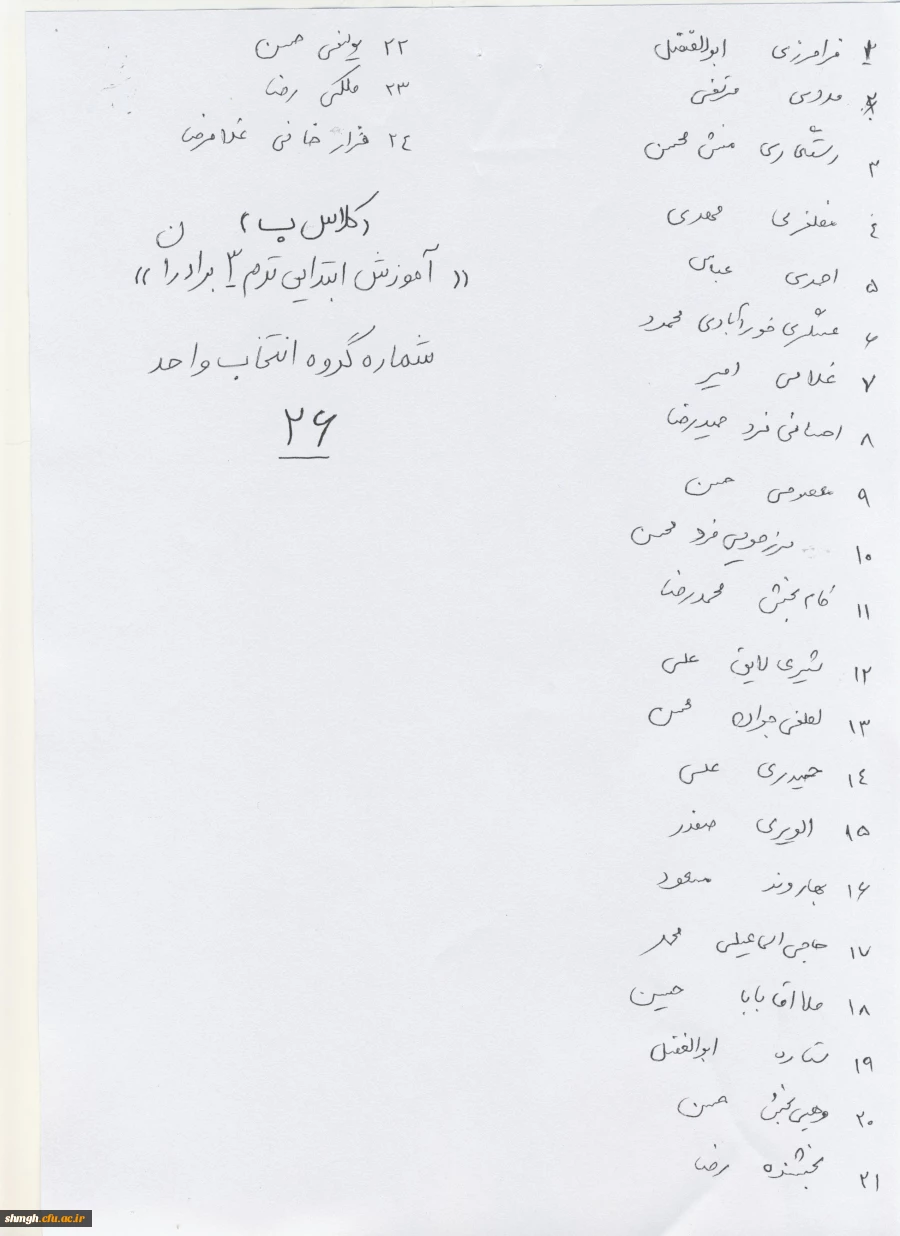 ۱ فرامرزی ابوالفضل
۲ مدوسی مرتضی
۳ رستگاری منش محسن
٤ مظفری مهدی
۵ احدی عباس
۶ عسگری خورآبادی محمود
۷ غلامی امیر
۸ احسانی فرد حمیدرضا
۹ معصومی حسن
۱۰ فرد محسن
۱۱ کام بخش محمدرضا
۱۲ شیری لایق علی
۱۳ لطفی جوان محسن
۱٤ حیدری علی
۱۵ الویری صفدر
۱۶ بهاروند مسعود
۱۷ حاجی اسماعیلی محمد
۱۸ ملا اقا بابا حسین
۱۹ ستاره ابوالفضل
۲۰ وهبی بخش حسن
۲۱ بخشنده رضا
۲۲ یوسفی حسن
۲۳ ملکی رضا
۲٤ قرار خانی غلامرضا
(کلاس ب)
((آموزش ابتدایی ترم ۳ برادران))
شماره گروه انتخاب واحد
۲۶
shmgh.cfu.ac.ir